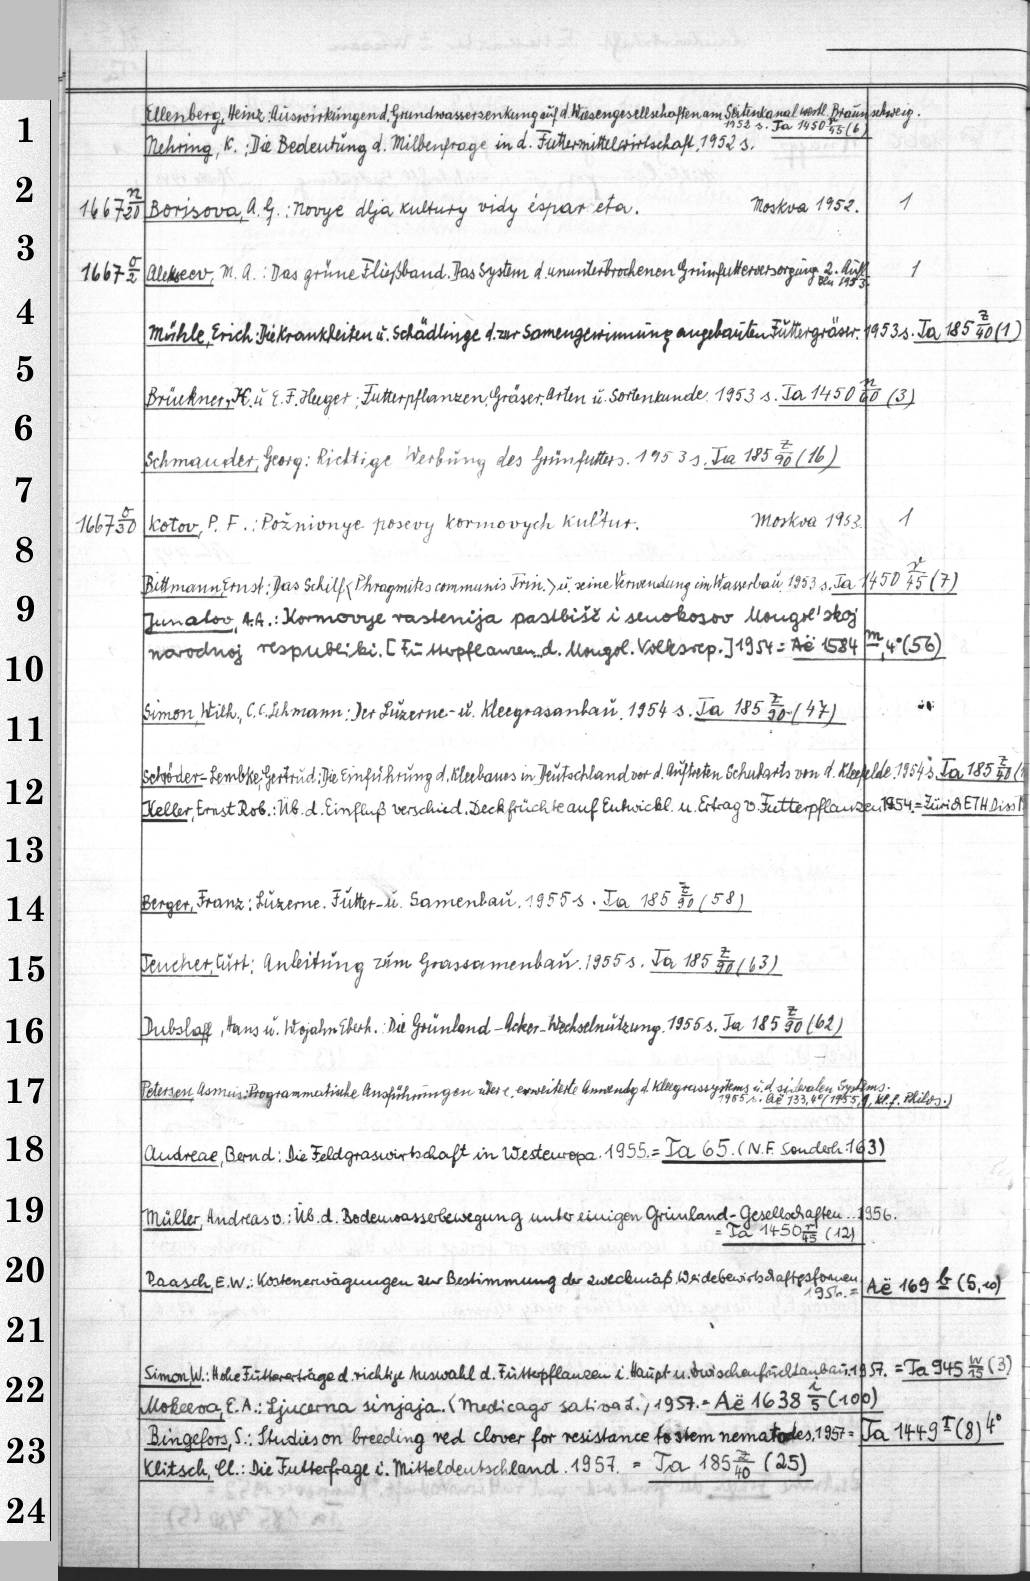 Ellenberg, Heinz: Auswirkungen d. Grundwassersenkung auf d. Wiesengesellschaften am Seitenkanal westl. Braunschweig.
1952 s. Ta 1450 r/45 (6)
1
Nehring, K.: Die Bedeutung d. Milbenfrage in d. Futtermittelwirtschaft, 1952 s.
2
1667 n/20 Borisova, A. G.: Novye dlja kultury vidy ėsparceta. Moskva 1952. 1
3
1667 o/2 Alekseev, M. A.: Das grüne Fließband. Das System d. ununterbrochenen Grünfutterversorgung 2. Aufl. 1
Bln 1953.
4
Mühle, Erich: Die Krankheiten u. Schädlinge d. zur Samengewinnung angebauten Futtergräser. 1953 s. Ta 185 z/40 (1)
5
Brückner, K. u. E. F. Heeger: Futterpflanzen, Gräser, Arten u. Sortenkunde. 1953 s. Ta 1450 n/60 (3)
6
Schmauder, Georg: Richtige Werbung des Grünfutters. 1953 s. Ta 185 z/90 (16)
7
1667 o/30 Kotov, P. F.: Požnivnye posevy kormovych kul'tur. Moskva 1953. 1
8
Bittmann, Ernst: Das Schilf <Phragmites communis Trin.> u. seine Verwendung im Wasserbau. 1953 s. Ta 1450 r/45 (7)
9
Junatov, A.A.: Kormovye rastenija pastbišč i senokosov Mongol'skoj
narodnoj respubliki. [Futterpflanzen.. d. Mongol. Volksrep.] 1954 = Aë 1584 m, 4° (56)
10
Simon, Wilh., C. C. Lehmann: Der Luzerne- u. Kleegrasanbau. 1954 s. Ta 185 z/90 (47)
11
Schröder-Lembke, Gertrud: Die Einführung d. Kleebaues in Deutschland vor d. Auftreten Schubarts von d. Kleefelde. 1954 s. Ta 185 z/50
12
Keller, Ernst Rob.: Üb. d. Einfluß verschied. Deckfrüchte auf Entwickl. u. Ertrag v. Futterpflanzen 1954. = Zürich ETH Diss
13
Berger, Franz: Luzerne. Futter- u. Samenbau. 1955 s. Ta 185 z/90 (58)
14
Teucher, Curt: Anleitung zum Grassamenbau. 1955 s. Ta 185 z/90 (63)
15
Dubslaff, Hans u. Wojahn Eberh.: Die Grünland-Acker-Wechselnutzung. 1955 s. Ta 185 z/90 (62)
16
17
Petersen, Asmus: Programmatische Ausführungen über e. erweiterte Anwendg d. Kleegrassystems u. d. Systems.
1955 s. Aë 133, 4° (1955, 9, Kl. f. Philos.)
18
Andreae, Bernd: Die Feldgraswirtschaft in Westeuropa. 1955. = Ta 65. (N.F. Sonderh. 163)
19
Müller, Andreas v.: Üb. d. Bodenwasserbewegung unter einigen Grünland-Gesellschaften... 1956.
= Ta 1450 r/45 (12)
20
Paasch, E.W.: Kostenerwägungen zur Bestimmung der zweckmäß. Weidebewirtschaftgsformen
1956. = Aë 169 b (5,10)
21
Simon, W.: Hohe Futtererträge d. richtige Auswahl d. Futterpflanzen i. Haupt u. Zwischenfruchtanbau. 1957. = Ta 945 w/15 (3)
22
Mokeeva, E. A.: Ljucerna sinjaja. (Medicago sativa L.) 1957. = Aë 1638 i/5 (100)
Bingefors, S.: Studies on breeding red clover for resistance to stem nematodes. 1957 = Ta 1449 I (8) 4°
23
Klitsch, Cl.: Die Futterfrage i. Mitteldeutschland. 1957. = Ta 185 z/40 (25)
24